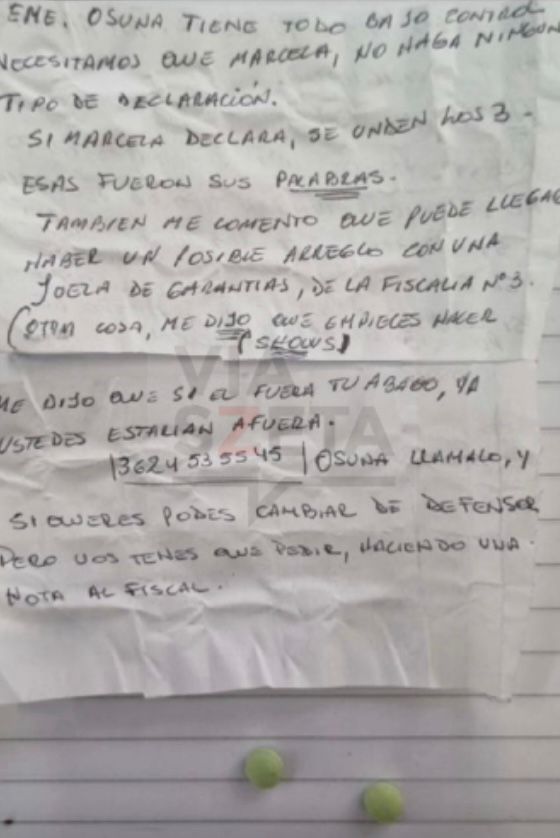 EME. OSUNA TIENE TODO BAJO CONTROL
NECESITAMOS QUE MARCELA, NO HAGA NINGUN
TIPO DE DECLARACIÓN.
SI MARCELA DECLARA, SE UNDEN LOS 3.
ESAS FUERON SUS PALABRAS.
TAMBIEN ME COMENTO QUE PUEDE LLEGAR
HABER UN POSIBLE ARREGLO CON UNA
JUEZA DE GARANTIAS, DE LA FISCALIA Nº3.
(OTRA COSA, ME DIJO QUE EMPIECES HACER
(SHOWS)
ME DIJO QUE SI EL FUERA TU ABAGO, YA
USTEDES ESTARIAN AFUERA.
3624535545 OSUNA LLAMALO, Y
SI QUERES PODES CAMBIAR DE DEFENSOR
PERO VOS TENES QUE PEDIR, HACIENDO UNA
NOTA AL FISCAL.
VIA
SZETA